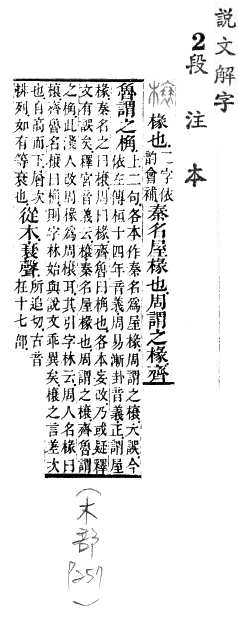 説文解字
2段注本
榱
椽也二字依韵會補秦名屋椽也周謂之椽齊
魯謂之桷上二句各本作秦名爲屋椽周謂之榱大誤今
依左傳桓十四年音義周易漸卦音義正謂屋
椽秦名之曰榱周曰椽齊魯曰桷也各本妄改乃或疑釋
文有誤矣釋宮音義云榱秦名屋椽也周謂之榱齊魯謂
之桷此淺人改周椽爲周榱耳其引字林云周人名椽曰
榱齊魯名榱曰桷則字林始與說文乖異矣榱之言差次
也自高而下層次
排列如有等衰也從木衰聲所追切古音
在十七部
(木部 P257)